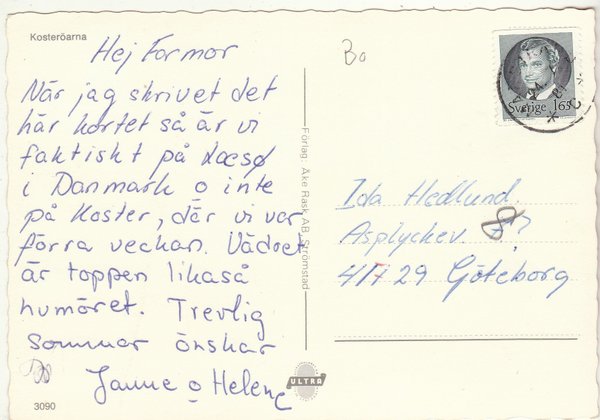 Kosteröarna
Hej Farmor
När jag skrivet det
här kortet så är vi
faktiskt på Læsø
i Danmark o inte
på Koster, där vi var
förra veckan. Vädret
är toppen likaså
humöret. Trevlig
sommar önskar
Janne o Helene
3090
Förlag: Åke Rask AB, Strömstad
ULTRA
Bo
Sverige 165
Ida Hedlund.
Asplyckev. 8?
417 29 Göteborg